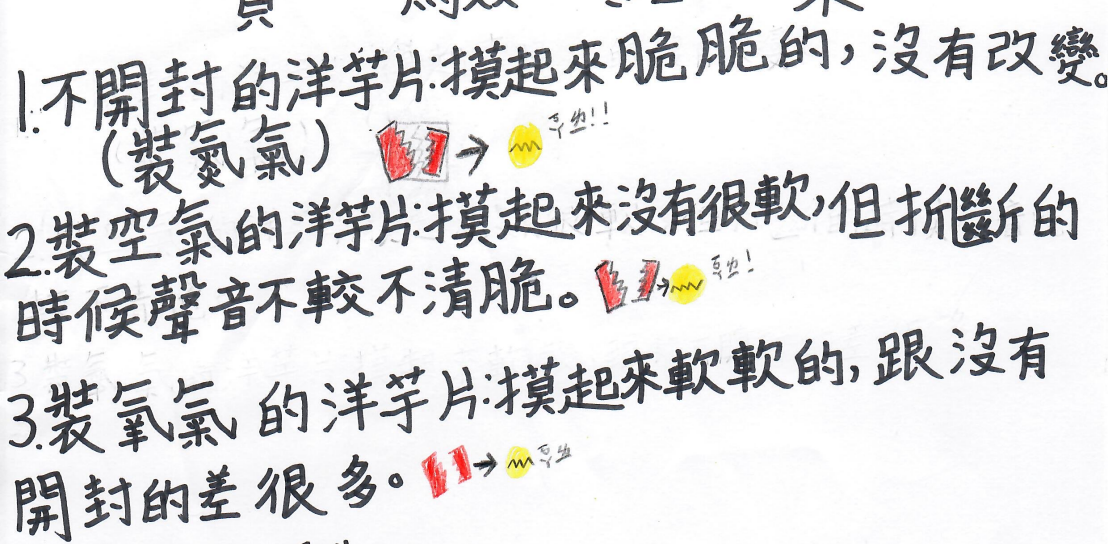 1.不開封的洋芋片:摸起來脆脆的,沒有改變。
(裝氮氣)
2.裝空氣的洋芋片:摸起來沒有很軟,但折斷的
時候聲音不較不清脆。
3.裝氧氣的洋芋片:摸起來軟軟的,跟沒有
開封的差很多。